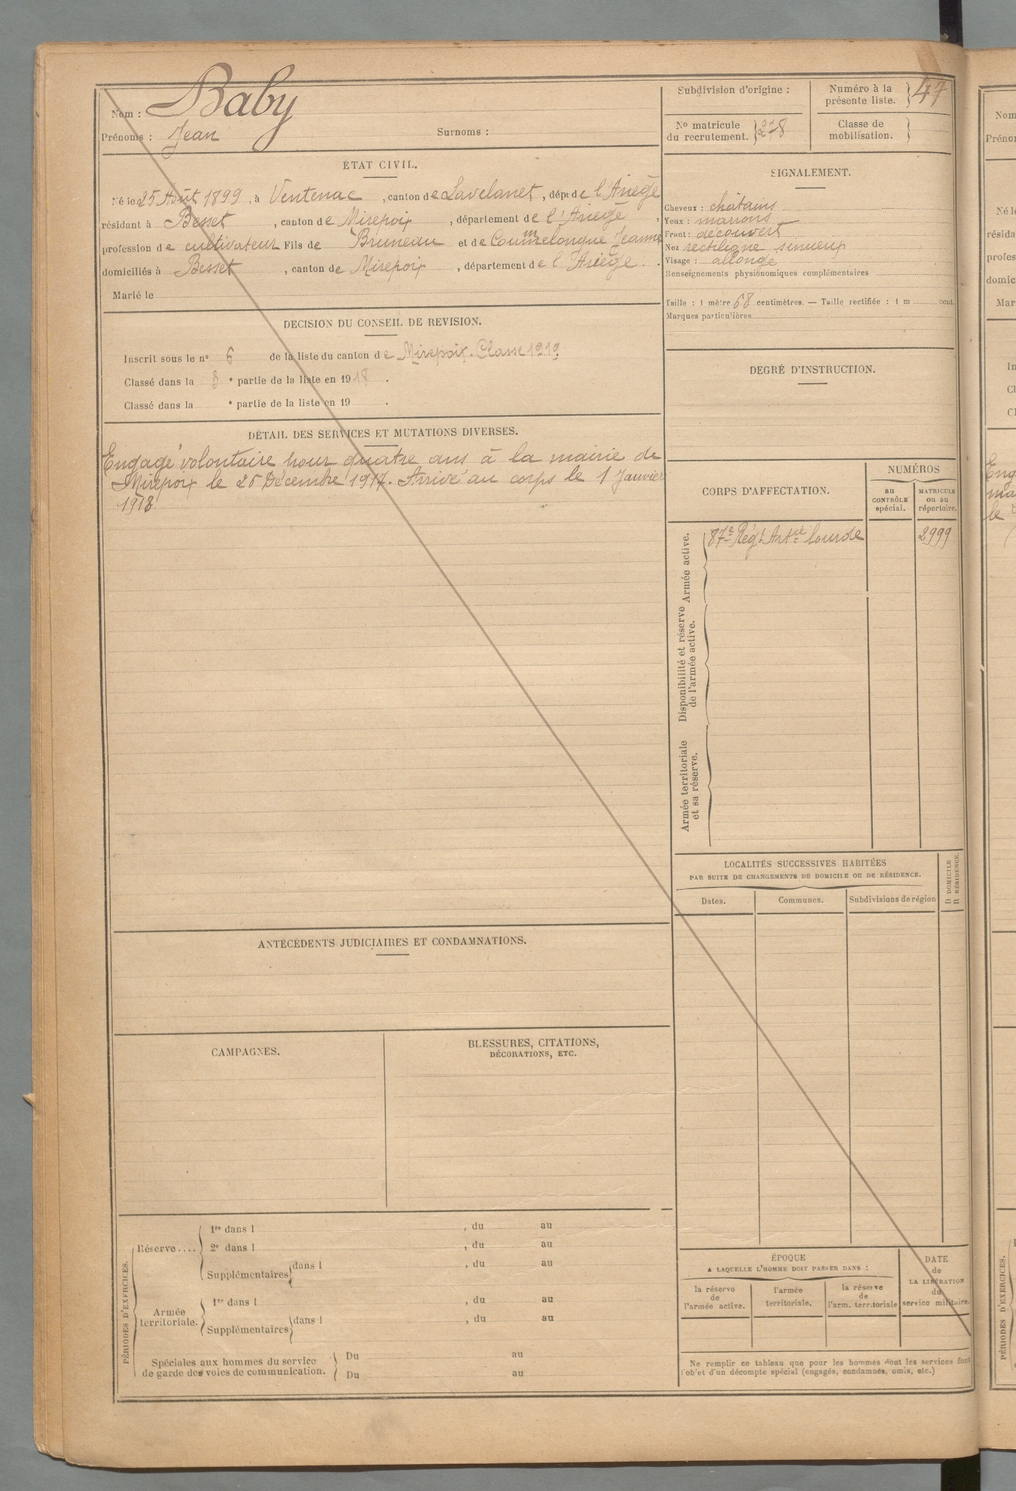 Nom : Baby
Prénoms : Jean Surnoms :
Subdivision d'origine :
Numéro à la présente liste. } 47
No matricule du recrutement. } 278
Classe de mobilisation. }
ÉTAT CIVIL.
Né le 25 Août 1899, à Ventenac, canton de Lavelanet, dépt de l'Ariège
résidant à Besset, canton de Mirepoix, département de l'Ariège,
profession de cultivateur Fils de Bruneau et de Coumelongue Jeanne
domiciliés à Besset, canton de Mirepoix, département de l'Ariège.
Marié le
SIGNALEMENT.
Cheveux : châtains
Yeux : marrons
Front : découvert
Nez rectiligne sinueux
Visage : allongé
Renseignements physionomiques complémentaires
Taille : 1 mètre 68 centimètres. — Taille rectifiée : 1 m cent.
Marques particulières
DÉCISION DU CONSEIL DE REVISION.
Inscrit sous le no 6 de la liste du canton de Mirepoix. Classe 1919
Classé dans la 3 e partie de la liste en 1918.
Classé dans la e partie de la liste en 19 .
DEGRÉ D'INSTRUCTION.
DÉTAIL DES SERVICES ET MUTATIONS DIVERSES.
Engagé volontaire pour quatre ans à la mairie de
Mirepoix le Décembre 1917. Arrivé au corps le 1 Janvier
1918.
CORPS D'AFFECTATION.
NUMÉROS
AU CONTRÔLE spécial.
MATRICULE OU AU répertoire.
Armée active.
87e Régt Artie lourde 2999
Disponibilité et réserve de l'armée active.
Armée territoriale et sa réserve.
LOCALITÉS SUCCESSIVES HABITÉES
PAR SUITE DE CHANGEMENTS DE DOMICILE OU DE RÉSIDENCE.
D DOMICILE R RÉSIDENCE.
Dates. Communes. Subdivisions de région
ANTÉCÉDENTS JUDICIAIRES ET CONDAMNATIONS.
CAMPAGNES.
BLESSURES, CITATIONS,
DÉCORATIONS, ETC.
PÉRIODES D'EXERCICES.
Réserve....
1re dans l , du au
2e dans l , du au
Supplémentaires } dans l , du au
Armée territoriale.
1re dans l , du au
Supplémentaires } dans l , du au
Spéciales aux hommes du service de garde des voies de communication.
Du au
Du au
ÉPOQUE
A LAQUELLE L'HOMME DOIT PASSER DANS :
la réserve de l'armée active.
l'armée territoriale.
la réserve de l'arm. territoriale
DATE de LA LIBÉRATION du service militaire.
Ne remplir ce tableau que pour les hommes dont les services font
l'objet d'un décompte spécial (engagés, condamnés, omis, etc.)